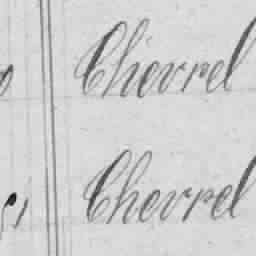 Chevrel
Chevrel